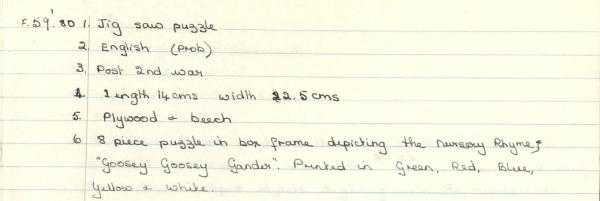 F.59'.80 1. Jig saw puzzle
2. English (Prob)
3. Post 2nd war
4. Length 14cms width 22.5cms
5. Plywood & beech
6 8 piece puzzle in box frame depicting the nursery Rhyme,
"Goosey Goosey Gander". Printed in Green, Red, Blue,
Yellow & White.